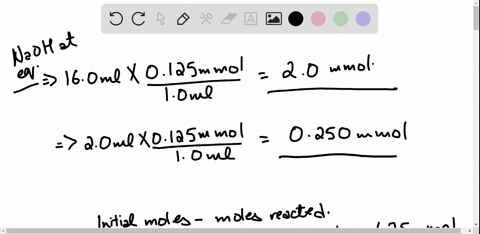 NaOH at
eqv. => 16.0 ml X 0.125 mmol / 1.0 ml = 2.0 mmol.
=> 2.0 ml X 0.125 mmol / 1.0 ml = 0.250 mmol
Initial moles - moles reacted.